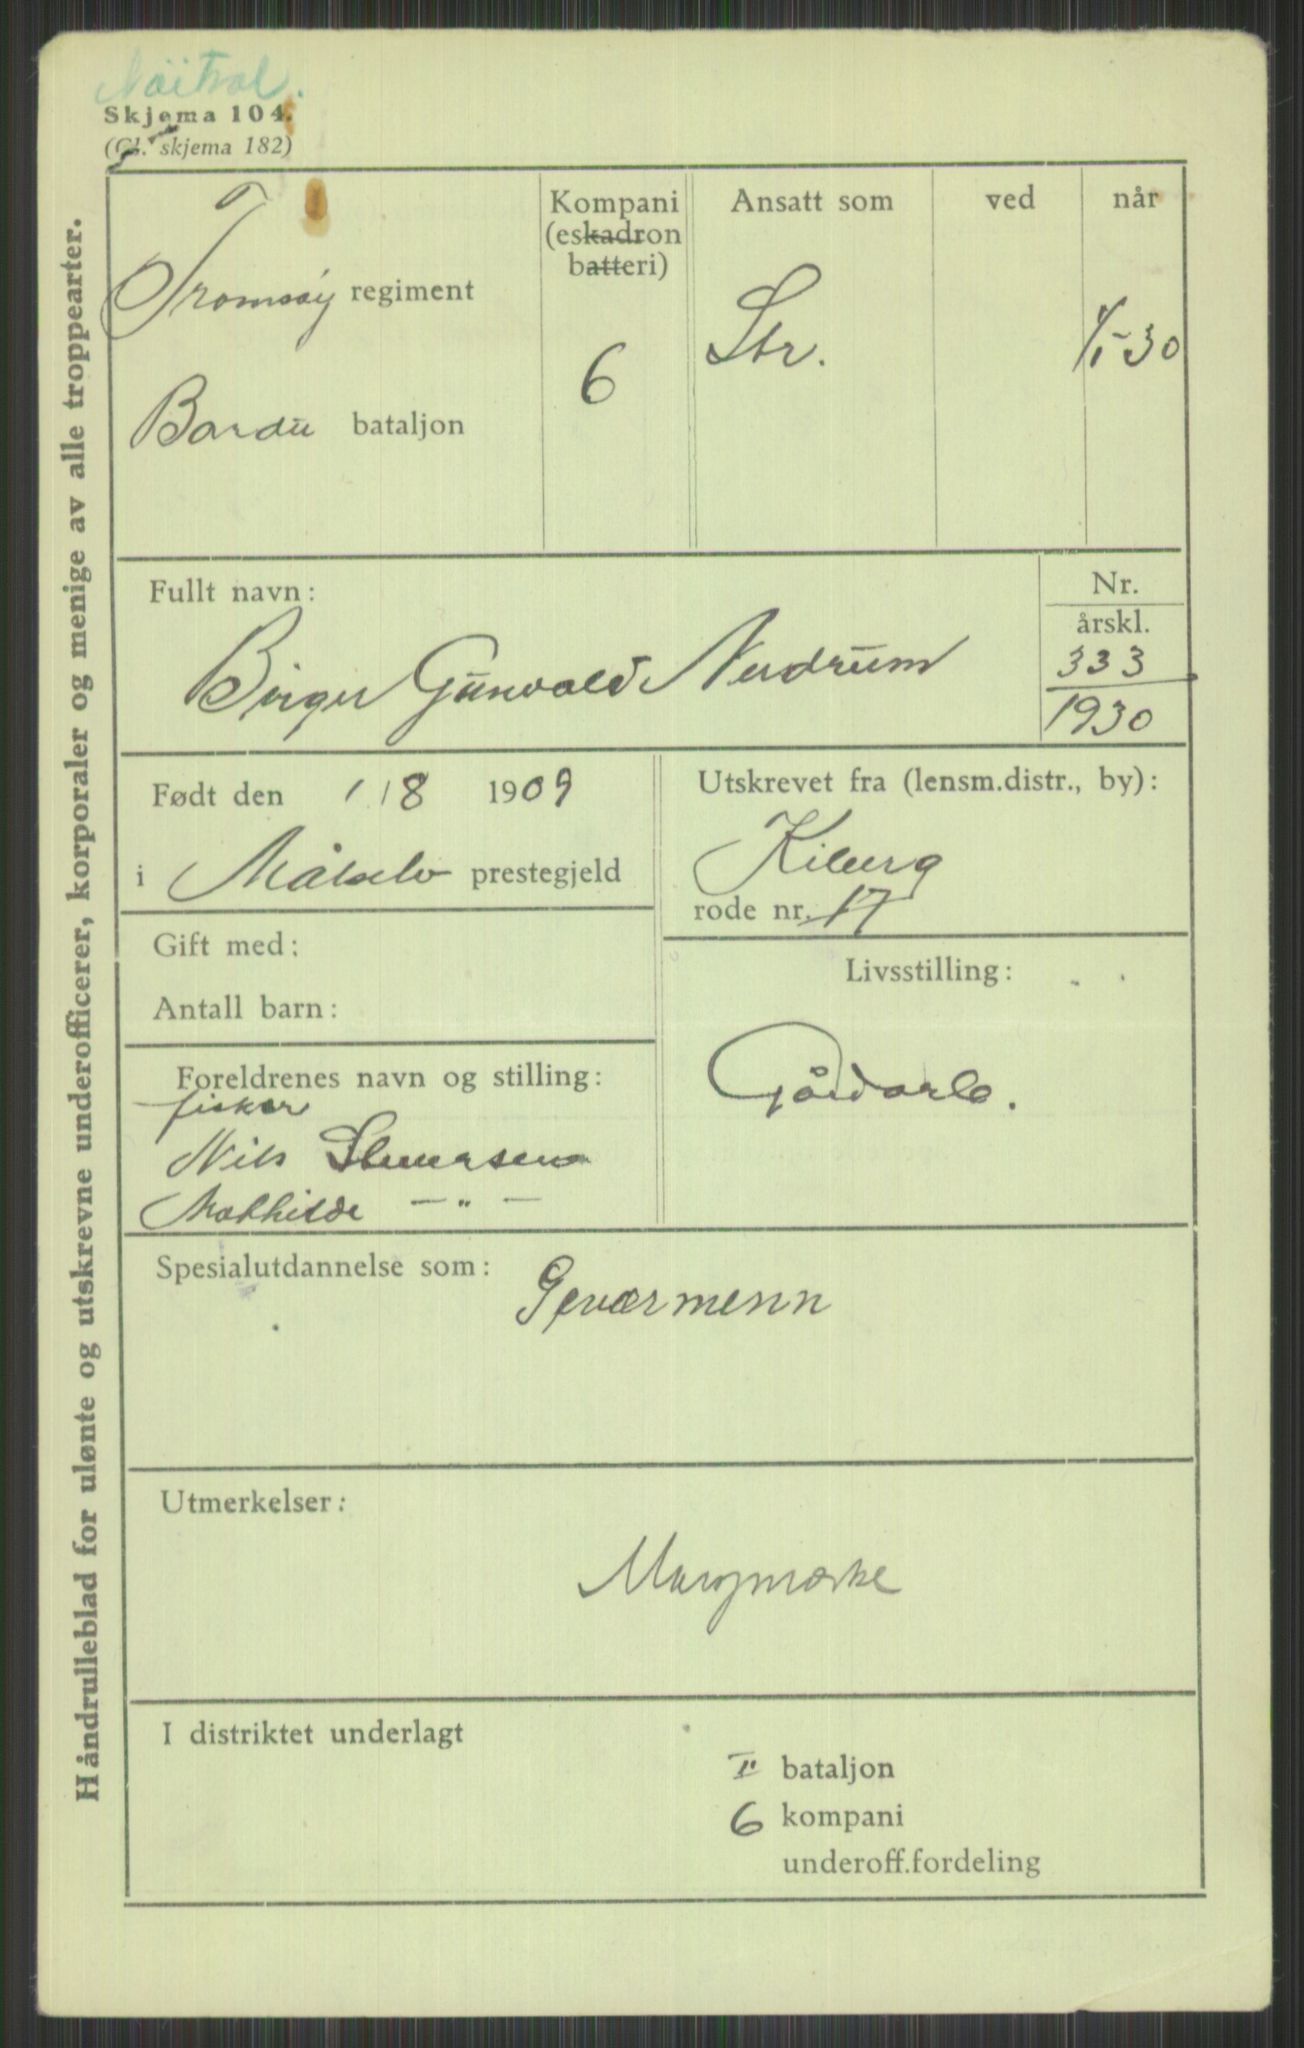 Nöitral.
Skjema 104.
(Gl. skjema 182)
Håndrulleblad for ulønte og utskrevne underofficerer, korporaler og menige av alle troppearter.
Tromsøy regiment
Bardu bataljon
Kompani
(eskadron
batteri)
6
Ansatt som
Str.
ved
når
1/1-30
Fullt navn:
Birger Gunvald Nerdrum
Nr.
årskl.
333
1930
Født den 1/8 1909
i Målselv prestegjeld
Utskrevet fra (lensm.distr., by):
Kiberg
rode nr. 17
Gift med:
Antall barn:
Livsstilling:
Gårdarb.
Foreldrenes navn og stilling:
fisker
Nils
Mathilde — " —
Spesialutdannelse som:
Geværmenn
Utmerkelser:
Marsjmerke
I distriktet underlagt
II bataljon
6 kompani
underoff.fordeling